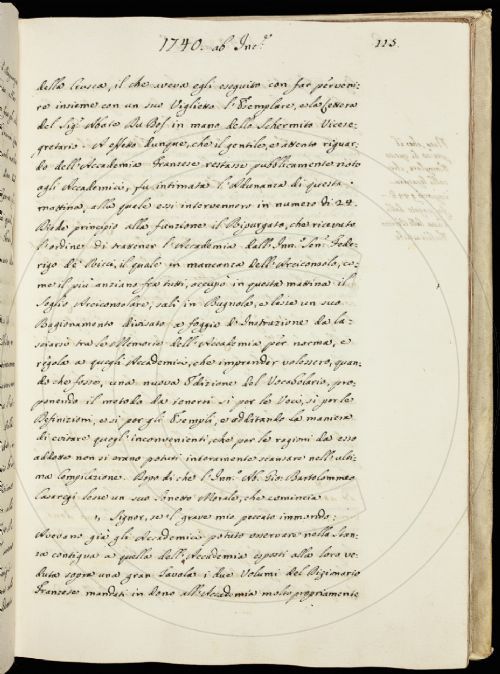 1740. ab Inc.e
113.
della Crusca, il che aveva egli eseguito con far perveni-
re insieme con un suo Viglietto l'Esemplare, e la Lettera
del Sig.r Abate Du Bos in mano dello Schermito Vicese-
gretario. A effetto dunque, che il gentile, e attento riguar-
do dell'Accademia Franzese restasse pubblicamente noto
agli Accademici, fu intimata l'Adunanza di questa
mattina, alla quale essi intervennero in numero di 24.
Diede principio alla funzione il Ripurgato, che ricevuto
l'ordine di trattener l'Accademia dall'Inn. Sen. Fede-
rigo de' Ricci, il quale in mancanza dell'Arciconsolo, co-
me il più anziano fra tutti, occupò in questa mattina il
Soglio Arciconsolare, salì in Bugnola, e lesse un suo
Ragionamento disteso a foggia d'Instruzione da la-
sciarsi tra le Memorie dell'Accademia per norma, e
regola a quegli Accademici, che imprender volessero, quan-
do che fosse, una nuova Edizione del Vocabolario, pro-
ponendo il metodo da tenersi sì per le Voci, sì per le
Definizioni, e sì per gli Esempli, e additando la maniera
di evitare quegl'inconvenienti, che per le ragioni da esso
addotte non si erano potuti interamente scansare nell'ulti-
ma Compilazione. Dopo di che l'Inn. Ab. Gio: Bartolommeo
Casaregi lesse un suo Sonetto Morale, che comincia
Signor, se il grave mio peccato immondo.
Avevano già gli Accademici potuto osservare nella Stan-
za contigua a quella dell'Accademia esposti alla loro ve-
duta sopra una gran Tavola i due Volumi del Dizionario
Franzese mandati in dono all'Accademia molto propriamente